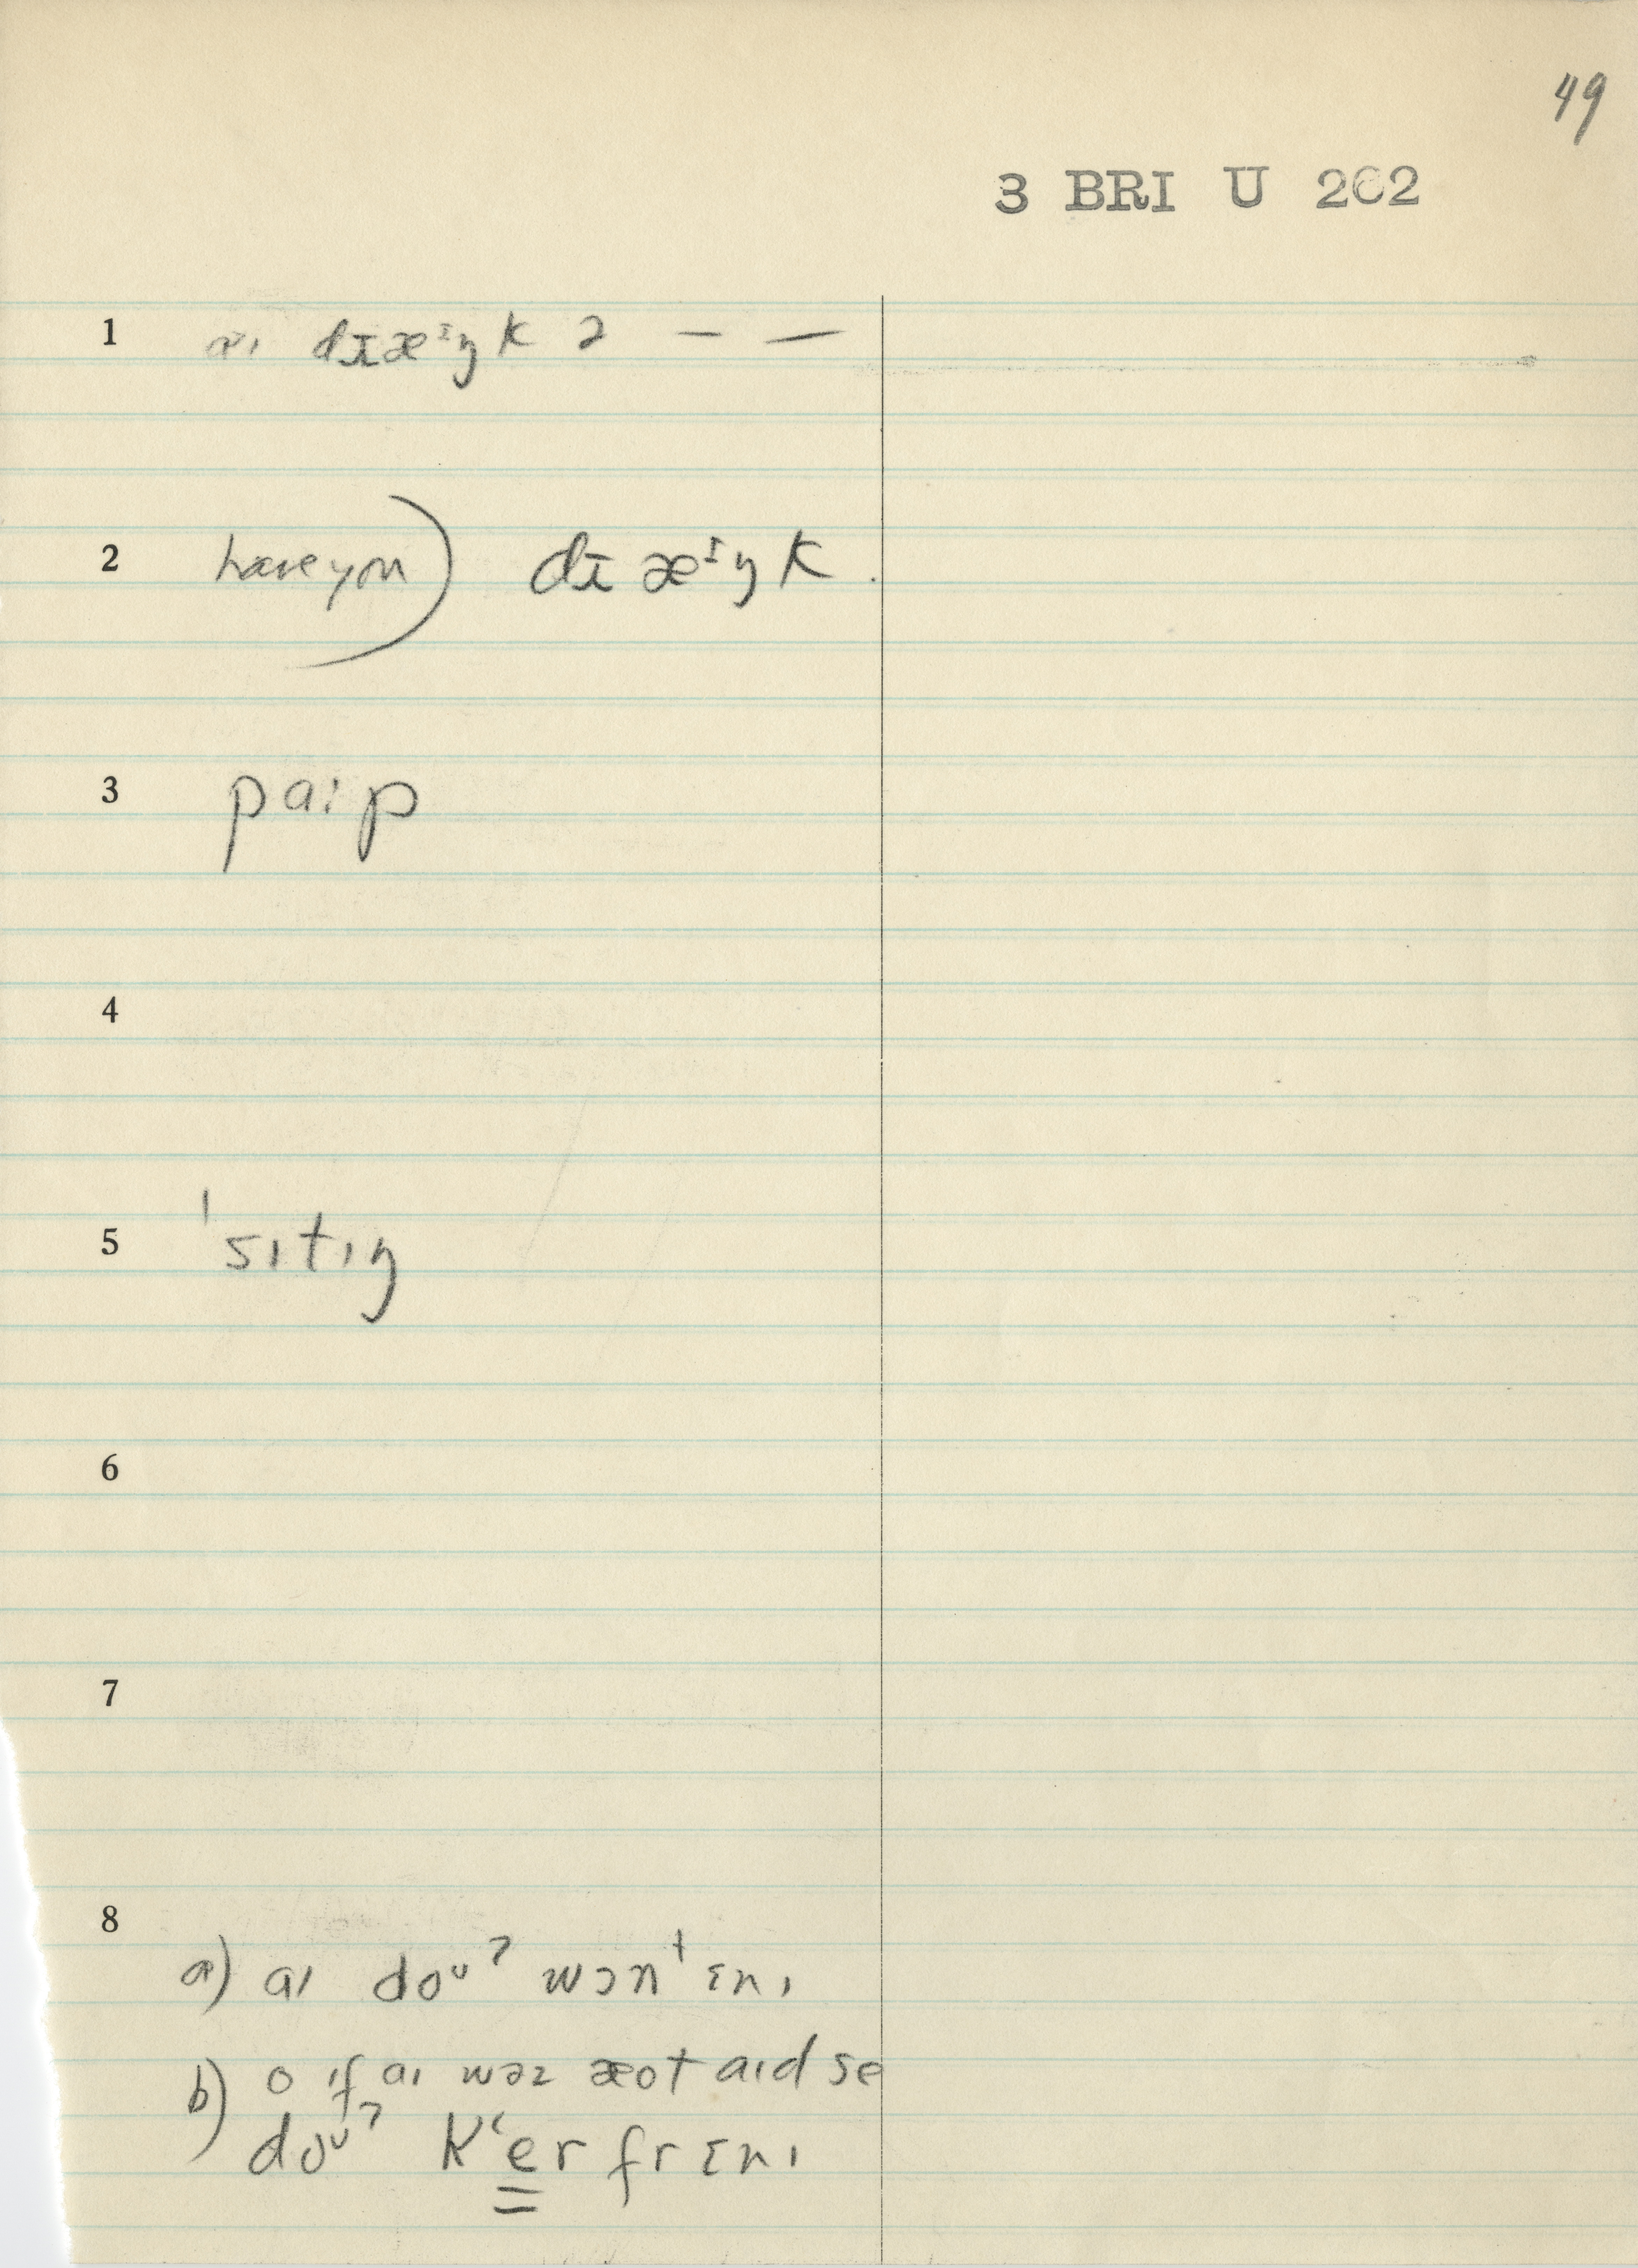 49
3 BRI U 202
1 aɪ drɪæᶦŋk ə — —
2 have you) drɪ æᶦŋk.
3 paɪp
4
5 ˈsɪtɪŋ
6
7
8
a) aɪ doᵘˀ wɔnᵗ ɛnɪ
b) o ɪf aɪ wəz æot aɪd se
doᵘˀ kʻer fr ɛnɪ